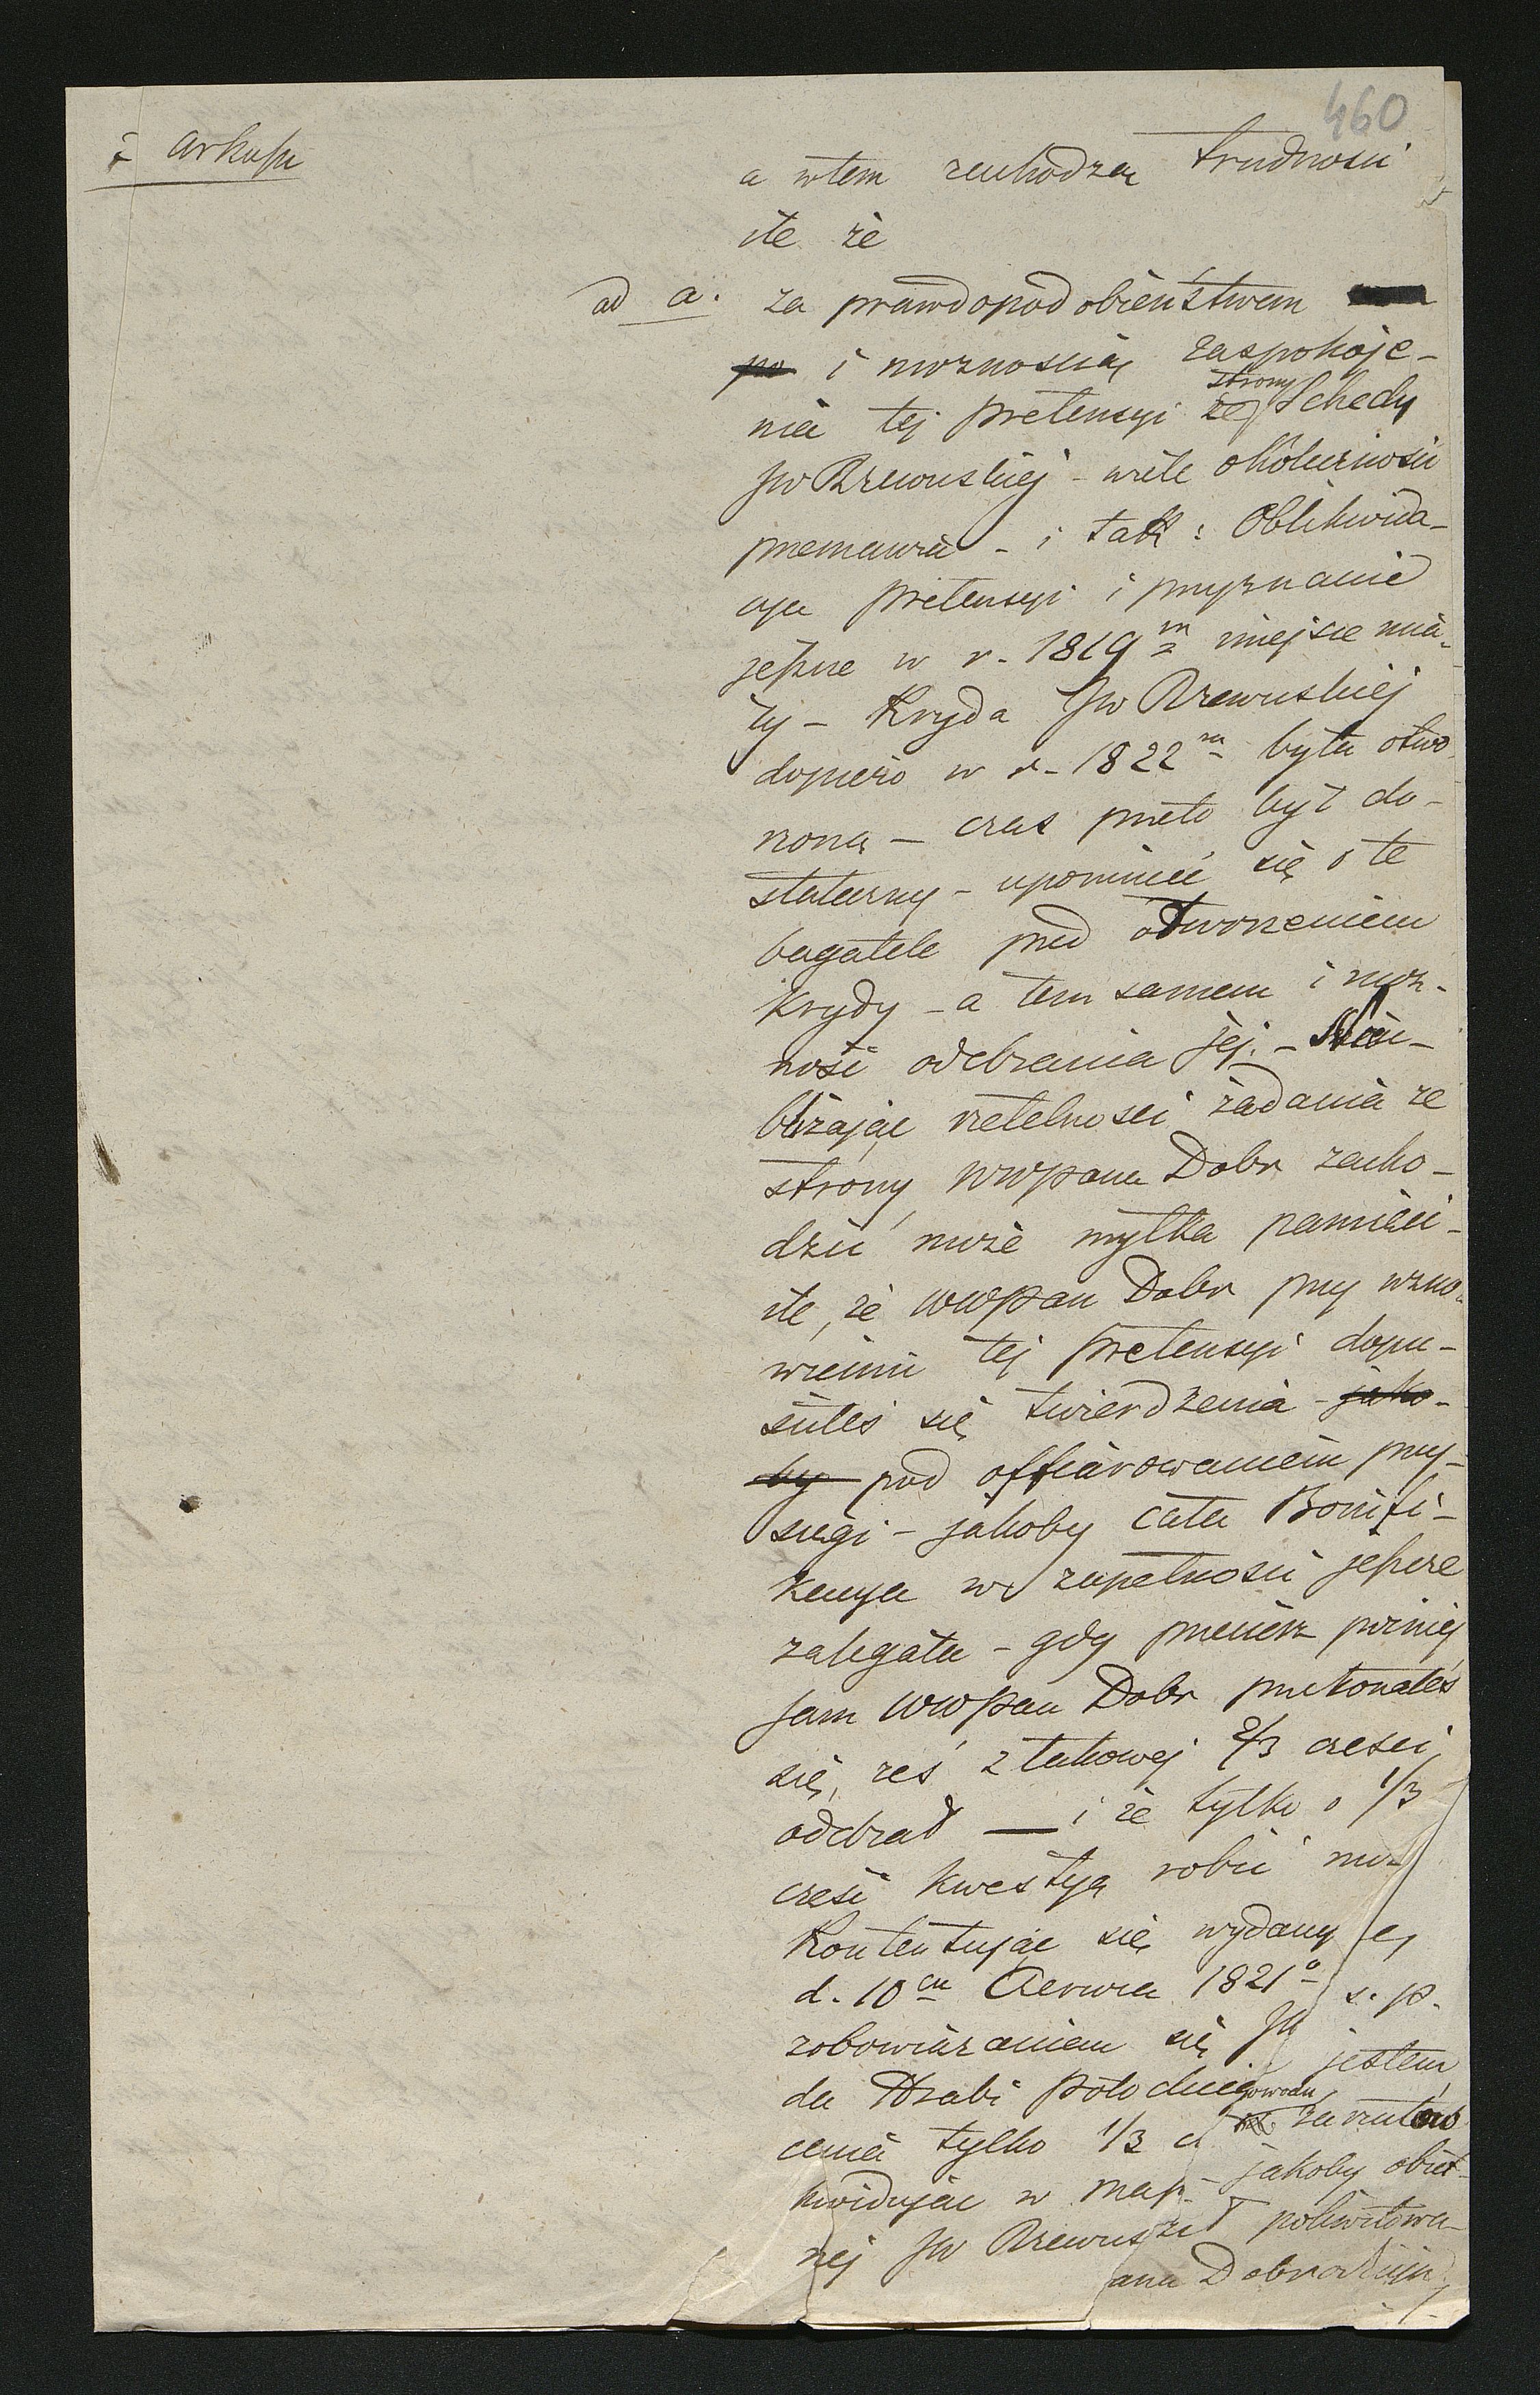 460
2 arkusz
a wtem zachodzą trudności
ile że
ad a. za prawdopodobieństwem
po i możnością zaspokoje-
nia tej pretensyi ze strony Schedy
JW Rzewuskiej - wiele okoliczności
przemawia - i tak: Oblikwida-
cya pretensyi i przyznanie
jeszcze w r. 1819m miejsce mia-
ły - Kryda JW Rzewuskiej
dopiero w r. 1822m była otwo
rzoną - czas przeto był do-
stateczny - upomnieć się o te
bagatele przed otworzeniem
krydy - a tem samem i moż-
ność odebrania jej. -
bliżając rzetelności żądania ze
strony WWPana Dobr zacho-
dzić może myłka pamięci -
ile, że WWPan Dobr przy wzno-
wieniu tej pretensyi dopu-
ściłeś się twierdzenia - jako-
by pod offiarowaniem przy-
sięgi - jakoby cała Bonifi-
kacya w zupełności jeszcze
zalegała - gdy przecież pózniej
sam WWPan Dobr przekonałeś
się, żeś z takowej 2/3 części
odebrał — i że tylko o 1/3
cześć kwestyą robić
Kontentując się wydany
d. 10cu Czerwca 1821o ś. p.
zobowiązaniem się JW jestem
da Hrabi Potockiego powodu
cenia tylko 1/3 zarzutów
kwidując w jakoby obli-
nej JW Rzewus pokwitowa-
ana Dobrodzieja